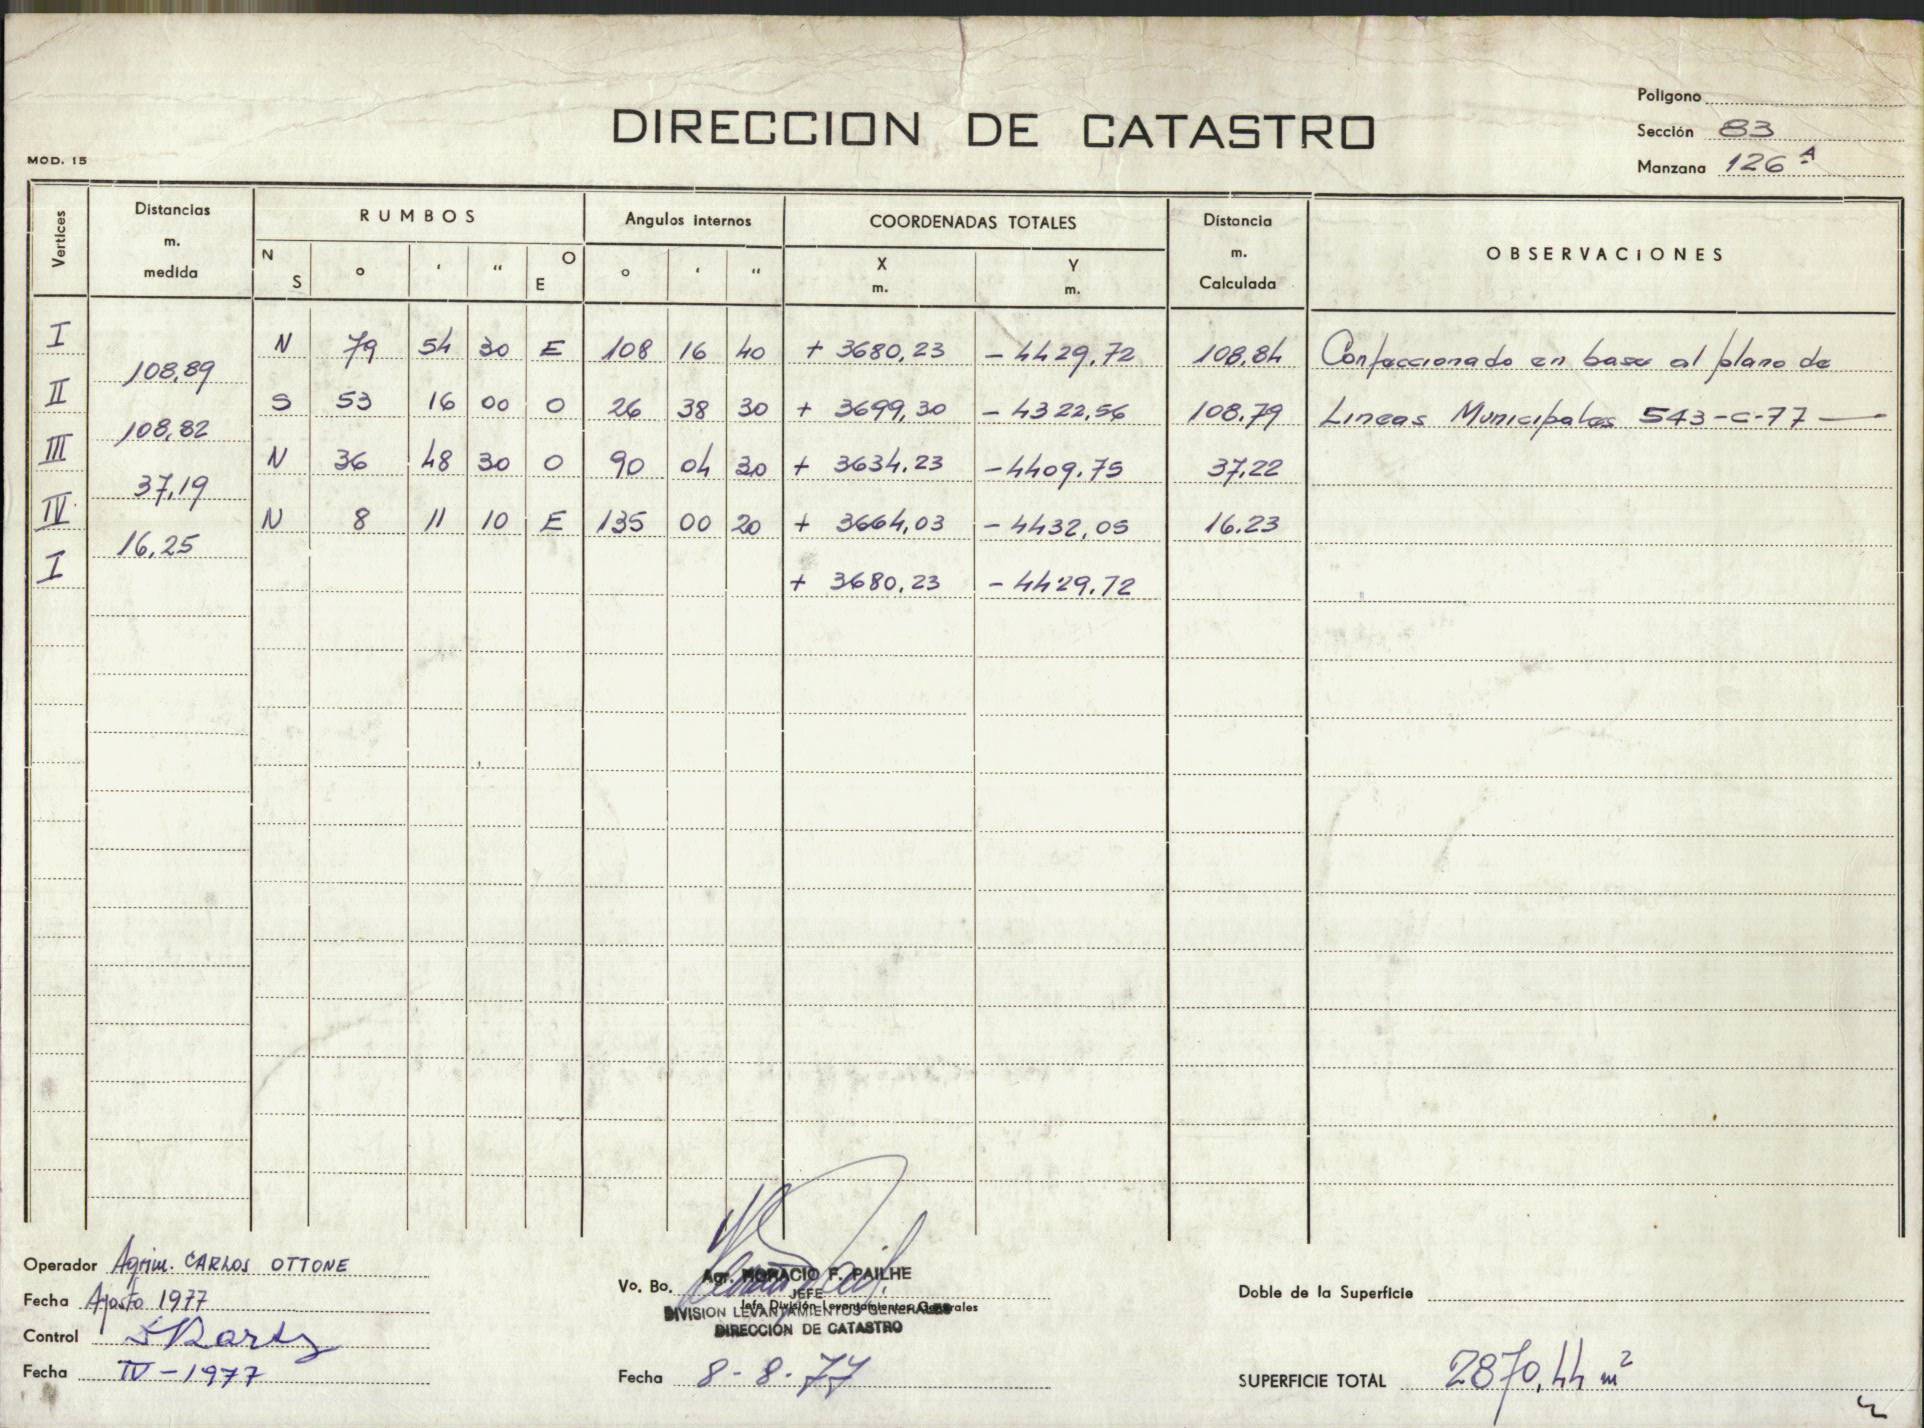 Polígono
DIRECCION DE CATASTRO
Sección 83
MOD. 15
Manzana 126 A
Vertices
Distancias m. medida
RUMBOS
Angulos internos
COORDENADAS TOTALES
Distancia m. Calculada
OBSERVACIONES
N S ° ' " O E ° ' " X m. Y m.
I N 79 54 30 E 108 16 40 + 3680,23 - 4429,72 108,84 Confeccionado en base al plano de
108,89
II S 53 16 00 O 26 38 30 + 3699,30 - 4322,56 108,79 Lineas Municipales 543-C-77
108,82
III N 36 48 30 O 90 04 30 + 3634,23 - 4409.75 37,22
37,19
IV N 8 11 10 E 135 00 20 + 3664,03 - 4432,05 16.23
16,25
I + 3680,23 - 4429,72
Operador Agrim. CARLOS OTTONE
Fecha Agosto 1977
Control
Fecha IV-1977
Vo. Bo. Agr. HORACIO F. PAILHE
JEFE
Jefe División Levantamientos Generales
DIVISION LEVANTAMIENTOS GENERALES
DIRECCIÓN DE CATASTRO
Fecha 8-8-77
Doble de la Superficie
SUPERFICIE TOTAL 2870,44 m²